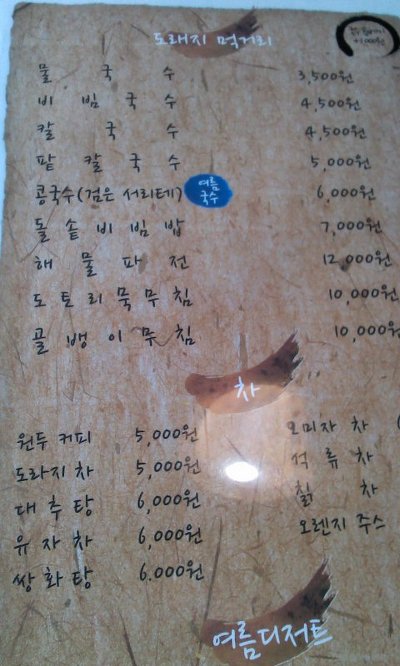 도래지 먹거리
물 국 수 3,500원
비 빔 국 수 4,500원
칼 국 수 4,500원
팥 칼 국 수 5,000원
콩국수(검은 서리테) 여름 국수 6,000원
돌 솥 비 빔 밥 7,000원
해 물 파 전 12,000원
도 토 리 묵 무 침 10,000원
골 뱅 이 무 침 10,000원
차
원두 커피 5,000원 오미자 차
도라지 차 5,000원 석 류 차
대 추 탕 6,000원 칡 차
유 자 차 6,000원 오렌지 주스
쌍 화 탕 6.000원
여름디저트